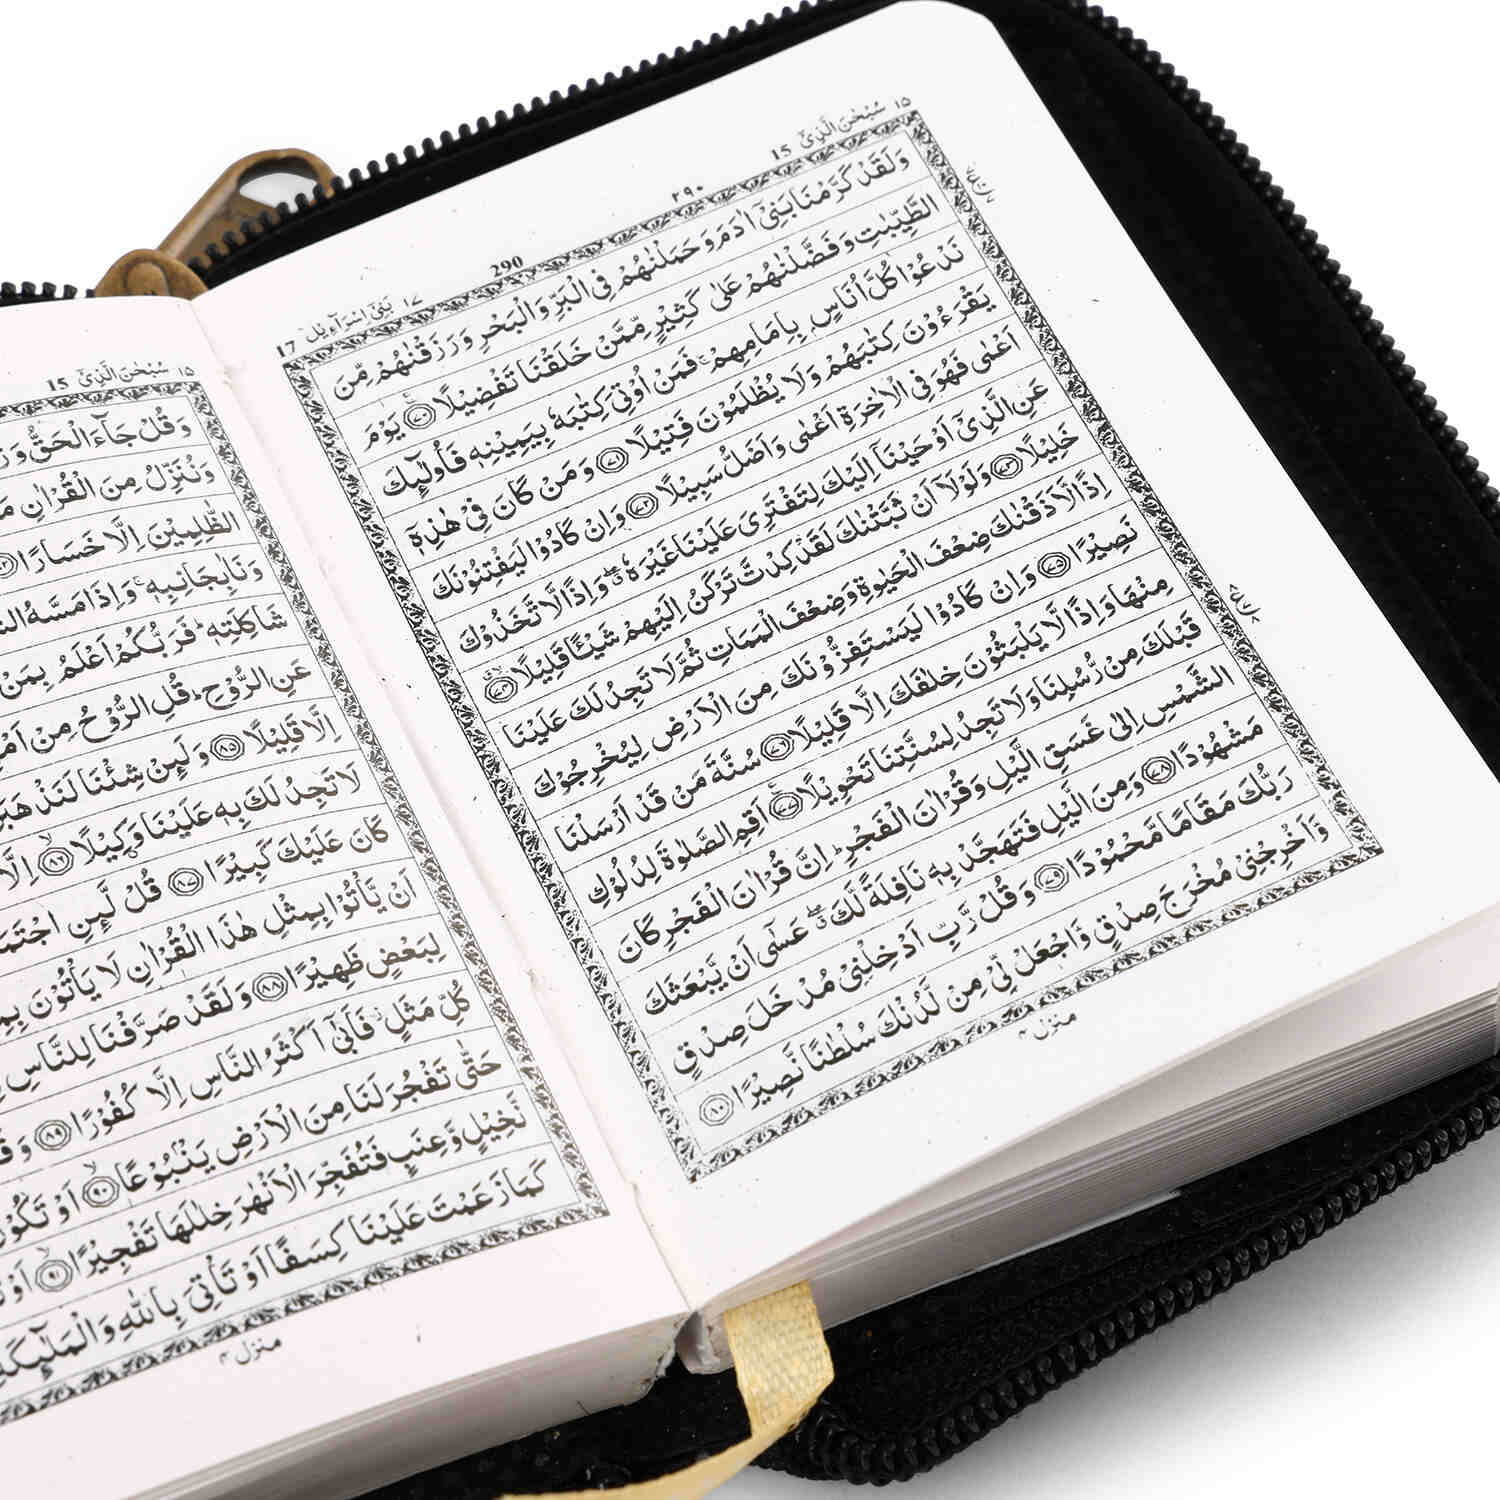 ١٥ سُبْحٰنَ الَّذِيْٓ 15
٢٩٠
290
١٧ بَنِيْٓ اِسْرَآءِيْل 17
وَلَقَدْ كَرَّمْنَا بَنِيْٓ اٰدَمَ وَحَمَلْنٰهُمْ فِي الْبَرِّ وَالْبَحْرِ وَرَزَقْنٰهُمْ مِّنَ
الطَّيِّبٰتِ وَفَضَّلْنٰهُمْ عَلٰى كَثِيْرٍ مِّمَّنْ خَلَقْنَا تَفْضِيْلًا ۝٧٠ يَوْمَ
نَدْعُوْا كُلَّ اُنَاسٍۭ بِاِمَامِهِمْ ۚ فَمَنْ اُوْتِيَ كِتٰبَهٗ بِيَمِيْنِهٖ فَاُولٰٓئِكَ
يَقْرَءُوْنَ كِتٰبَهُمْ وَلَا يُظْلَمُوْنَ فَتِيْلًا ۝٧١ وَمَنْ كَانَ فِيْ هٰذِهٖٓ
اَعْمٰى فَهُوَ فِي الْاٰخِرَةِ اَعْمٰى وَاَضَلُّ سَبِيْلًا ۝٧٢ وَاِنْ كَادُوْا لَيَفْتِنُوْنَكَ
عَنِ الَّذِيْٓ اَوْحَيْنَآ اِلَيْكَ لِتَفْتَرِيَ عَلَيْنَا غَيْرَهٗ ۖ وَاِذًا لَّاتَّخَذُوْكَ
خَلِيْلًا ۝٧٣ وَلَوْلَآ اَنْ ثَبَّتْنٰكَ لَقَدْ كِدْتَّ تَرْكَنُ اِلَيْهِمْ شَيْـًٔا قَلِيْلًا ۝٧٤
اِذًا لَّاَذَقْنٰكَ ضِعْفَ الْحَيٰوةِ وَضِعْفَ الْمَمَاتِ ثُمَّ لَا تَجِدُ لَكَ عَلَيْنَا
نَصِيْرًا ۝٧٥ وَاِنْ كَادُوْا لَيَسْتَفِزُّوْنَكَ مِنَ الْاَرْضِ لِيُخْرِجُوْكَ
مِنْهَا وَاِذًا لَّا يَلْبَثُوْنَ خِلٰفَكَ اِلَّا قَلِيْلًا ۝٧٦ سُنَّةَ مَنْ قَدْ اَرْسَلْنَا
قَبْلَكَ مِنْ رُّسُلِنَا وَلَا تَجِدُ لِسُنَّتِنَا تَحْوِيْلًا ۝٧٧ اَقِمِ الصَّلٰوةَ لِدُلُوْكِ
الشَّمْسِ اِلٰى غَسَقِ الَّيْلِ وَقُرْاٰنَ الْفَجْرِ ۭ اِنَّ قُرْاٰنَ الْفَجْرِ كَانَ
مَشْهُوْدًا ۝٧٨ وَمِنَ الَّيْلِ فَتَهَجَّدْ بِهٖ نَافِلَةً لَّكَ ۖ عَسٰٓى اَنْ يَّبْعَثَكَ
رَبُّكَ مَقَامًا مَّحْمُوْدًا ۝٧٩ وَقُلْ رَّبِّ اَدْخِلْنِيْ مُدْخَلَ صِدْقٍ
وَّاَخْرِجْنِيْ مُخْرَجَ صِدْقٍ وَّاجْعَلْ لِّيْ مِنْ لَّدُنْكَ سُلْطٰنًا نَّصِيْرًا ۝٨٠
منزل ٤
١٥ سُبْحٰنَ الَّذِيْٓ 15
وَقُلْ جَآءَ الْحَقُّ وَ
وَنُنَزِّلُ مِنَ الْقُرْاٰنِ
الظّٰلِمِيْنَ اِلَّا خَسَارًا
وَنَاٰ بِجَانِبِهٖ ۚ وَاِذَا مَسَّهُ
شَاكِلَتِهٖ ۭ فَرَبُّكُمْ اَعْلَمُ بِمَنْ
عَنِ الرُّوْحِ ۭ قُلِ الرُّوْحُ مِنْ
اِلَّا قَلِيْلًا ۝٨٥ وَلَئِنْ شِئْنَا
لَا تَجِدُ لَكَ بِهٖ عَلَيْنَا وَكِيْلًا ۝٨٦
كَانَ عَلَيْكَ كَبِيْرًا ۝٨٧ قُلْ لَّئِنِ
اَنْ يَّاْتُوْا بِمِثْلِ هٰذَا الْقُرْاٰنِ لَا يَاْتُوْنَ
لِبَعْضٍ ظَهِيْرًا ۝٨٨ وَلَقَدْ صَرَّفْنَا لِلنَّاسِ
كُلِّ مَثَلٍ ۡ فَاَبٰٓى اَكْثَرُ النَّاسِ اِلَّا كُفُوْرًا ۝٨٩
حَتّٰى تَفْجُرَ لَنَا مِنَ الْاَرْضِ يَنْۢبُوْعًا ۝٩٠ اَوْ
نَّخِيْلٍ وَّعِنَبٍ فَتُفَجِّرَ الْاَنْهٰرَ خِلٰلَهَا تَفْجِيْرًا ۝٩١ اَوْ
كَمَا زَعَمْتَ عَلَيْنَا كِسَفًا اَوْ تَاْتِيَ بِاللّٰهِ وَالْمَلٰٓئِكَةِ
منزل ٤